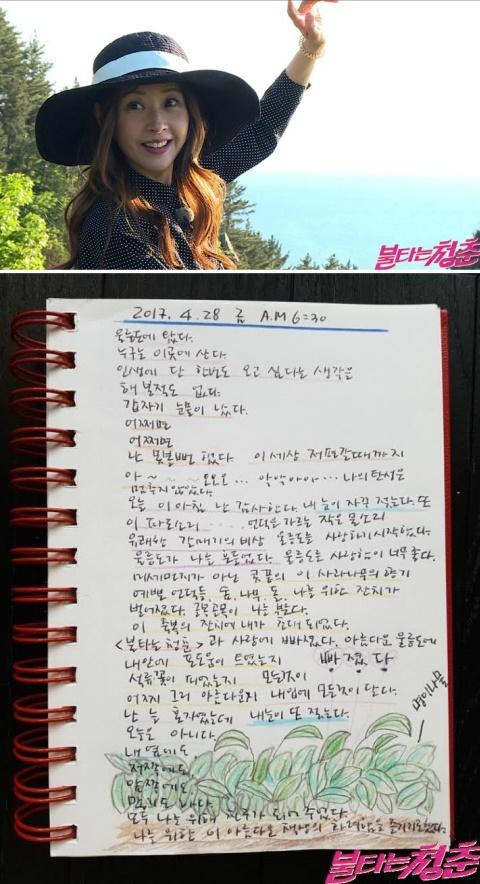 불타는청춘
2017. 4. 28 금 A.M 6:30
울릉도에 왔다.
누구는 이곳에 산다.
인생에 단 한번도 오고 싶다는 생각은
해 본적도 없다.
갑자기 눈물이 났다.
어쩌면
어쩌면
난 못볼뻔 했다. 이세상 저편갈때까지
아~ ~ ~ 오오오... 악악아아... 나의탄성은
멈추지 않았다.
오늘 이 아침 난 감사한다. 내 눈이 자꾸 젖는다. 또
이 파도소리 .... 언덕을 가르는 작은 물소리
유쾌한 갈매기의 비상 울릉도를 사랑하기 시작했다.
울릉도가 나를 보듬었다. 울릉도를 사랑함이 너무 좋다.
미세먼지가 아닌 꽃꿀의 이 사라나무의 향기
예쁜 언덕들, 숲, 나무, 돌, 나를 위한 잔치가
벌어졌다. 골목골목이 나를 부른다.
이 축복의 잔치에 내가 초대 되었다.
<불타는 청춘>과 사랑에 빠졌다. 아름다운 울릉도에
내안에 포도움이 트였는지 빠졌다
석류꽃이 피었는지 모든것이
어찌 그리 아름다운지 내입에 모든것이 달다.
난 늘 혼자였는데 내눈이 또 젖는다.
명이나물
오늘은 아니다.
내 옆에도
저쪽에도
앞쪽에도
모두 나를 위해 친구가 되어 주었다.
나를 위한 이 아름다운
불타는청춘